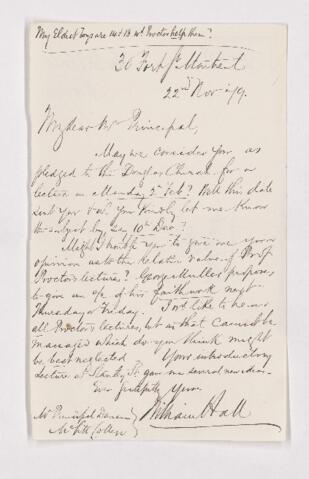 My Eldest boys are 14 & 13 wd. Proctor help them?
30 Fort St. Montreal
22nd Nov. 79.
My dear Mr Principal,
May we consider you as
pledged to the Douglas Church for a
lecture on Monday 2 Feb? Will this date
suit you & wd. you kindly let me know
the subject by say 10th Dec?
Might I trouble you to give me your
opinion as to the relative value of Prof
Proctor's lectures? George Muller proposes
to give an of his faith work next
Thursday or Friday. I wd. like to hear
all Proctor's lectures, but as that cannot be
managed which do you think might
be best neglected Your introductory
lecture at Stanley St. gave me several new ideas.
Ever faithfully yours
William Hall
Mr Principal Dawson
McGill College